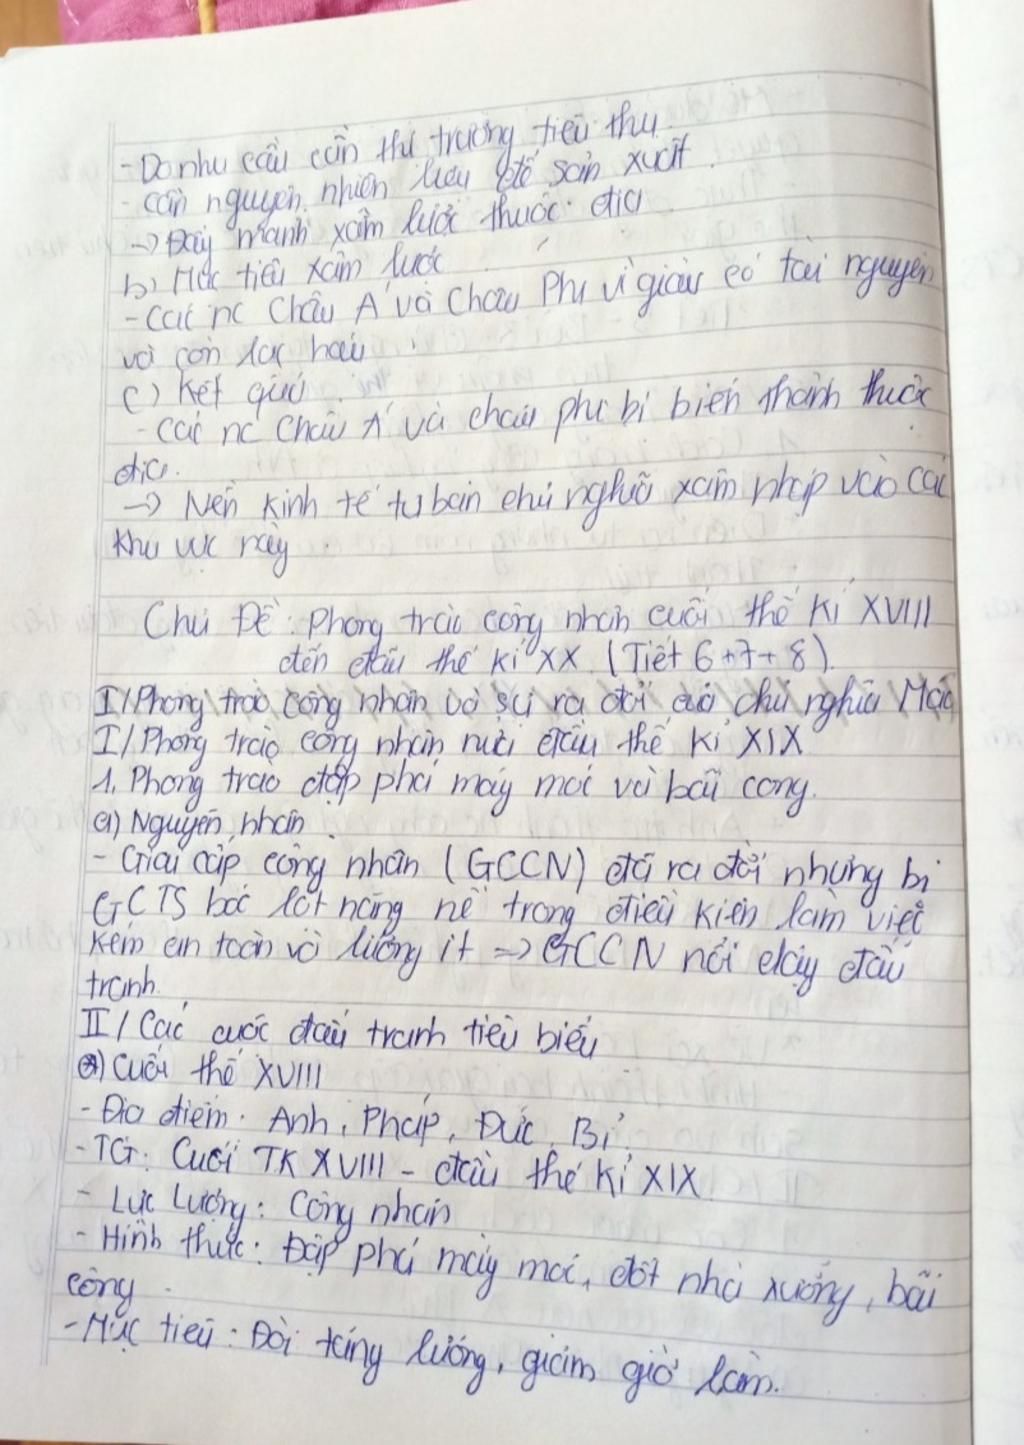 - Do nhu cầu cần thị trường tiêu thụ
- cần nguyên nhiên liệu để sản xuất
-> Đẩy mạnh xâm lược thuộc địa
b) Mục tiêu xâm lược
- Các nc Châu Á và Châu Phi vì giàu có tài nguyên
và còn lạc hậu
c) Kết quả
- Các nc Châu Á và châu phi bị biến thành thuộc
địa.
-> Nền kinh tế tư bản chủ nghĩa xâm nhập vào các
khu vực này
Chủ Đề: Phong trào công nhân cuối thế kỉ XVIII
đến đầu thế kỉ XX. (Tiết 6+7+8).
I/ Phong trào công nhân và sự ra đời của chủ nghĩa Mác
I/ Phong trào công nhân nửa đầu thế kỉ XIX
1. Phong trào đập phá máy móc và bãi công.
a) Nguyên nhân
- Giai cấp công nhân (GCCN) đã ra đời nhưng bị
GCTS bóc lột nặng nề trong điều kiện làm việc
kém an toàn và lương ít => GCCN nổi dậy đấu
tranh.
II/ Các cuộc đấu tranh tiêu biểu
a) Cuối thế XVIII
- Địa điểm: Anh, Pháp, Đức, Bỉ.
- TG: Cuối TK XVIII - đầu thế kỉ XIX
- Lực Lượng: Công nhân
- Hình thức: Đập phá máy móc, đốt nhà xưởng, bãi
công.
- Mục tiêu: Đòi tăng lương, giảm giờ làm.